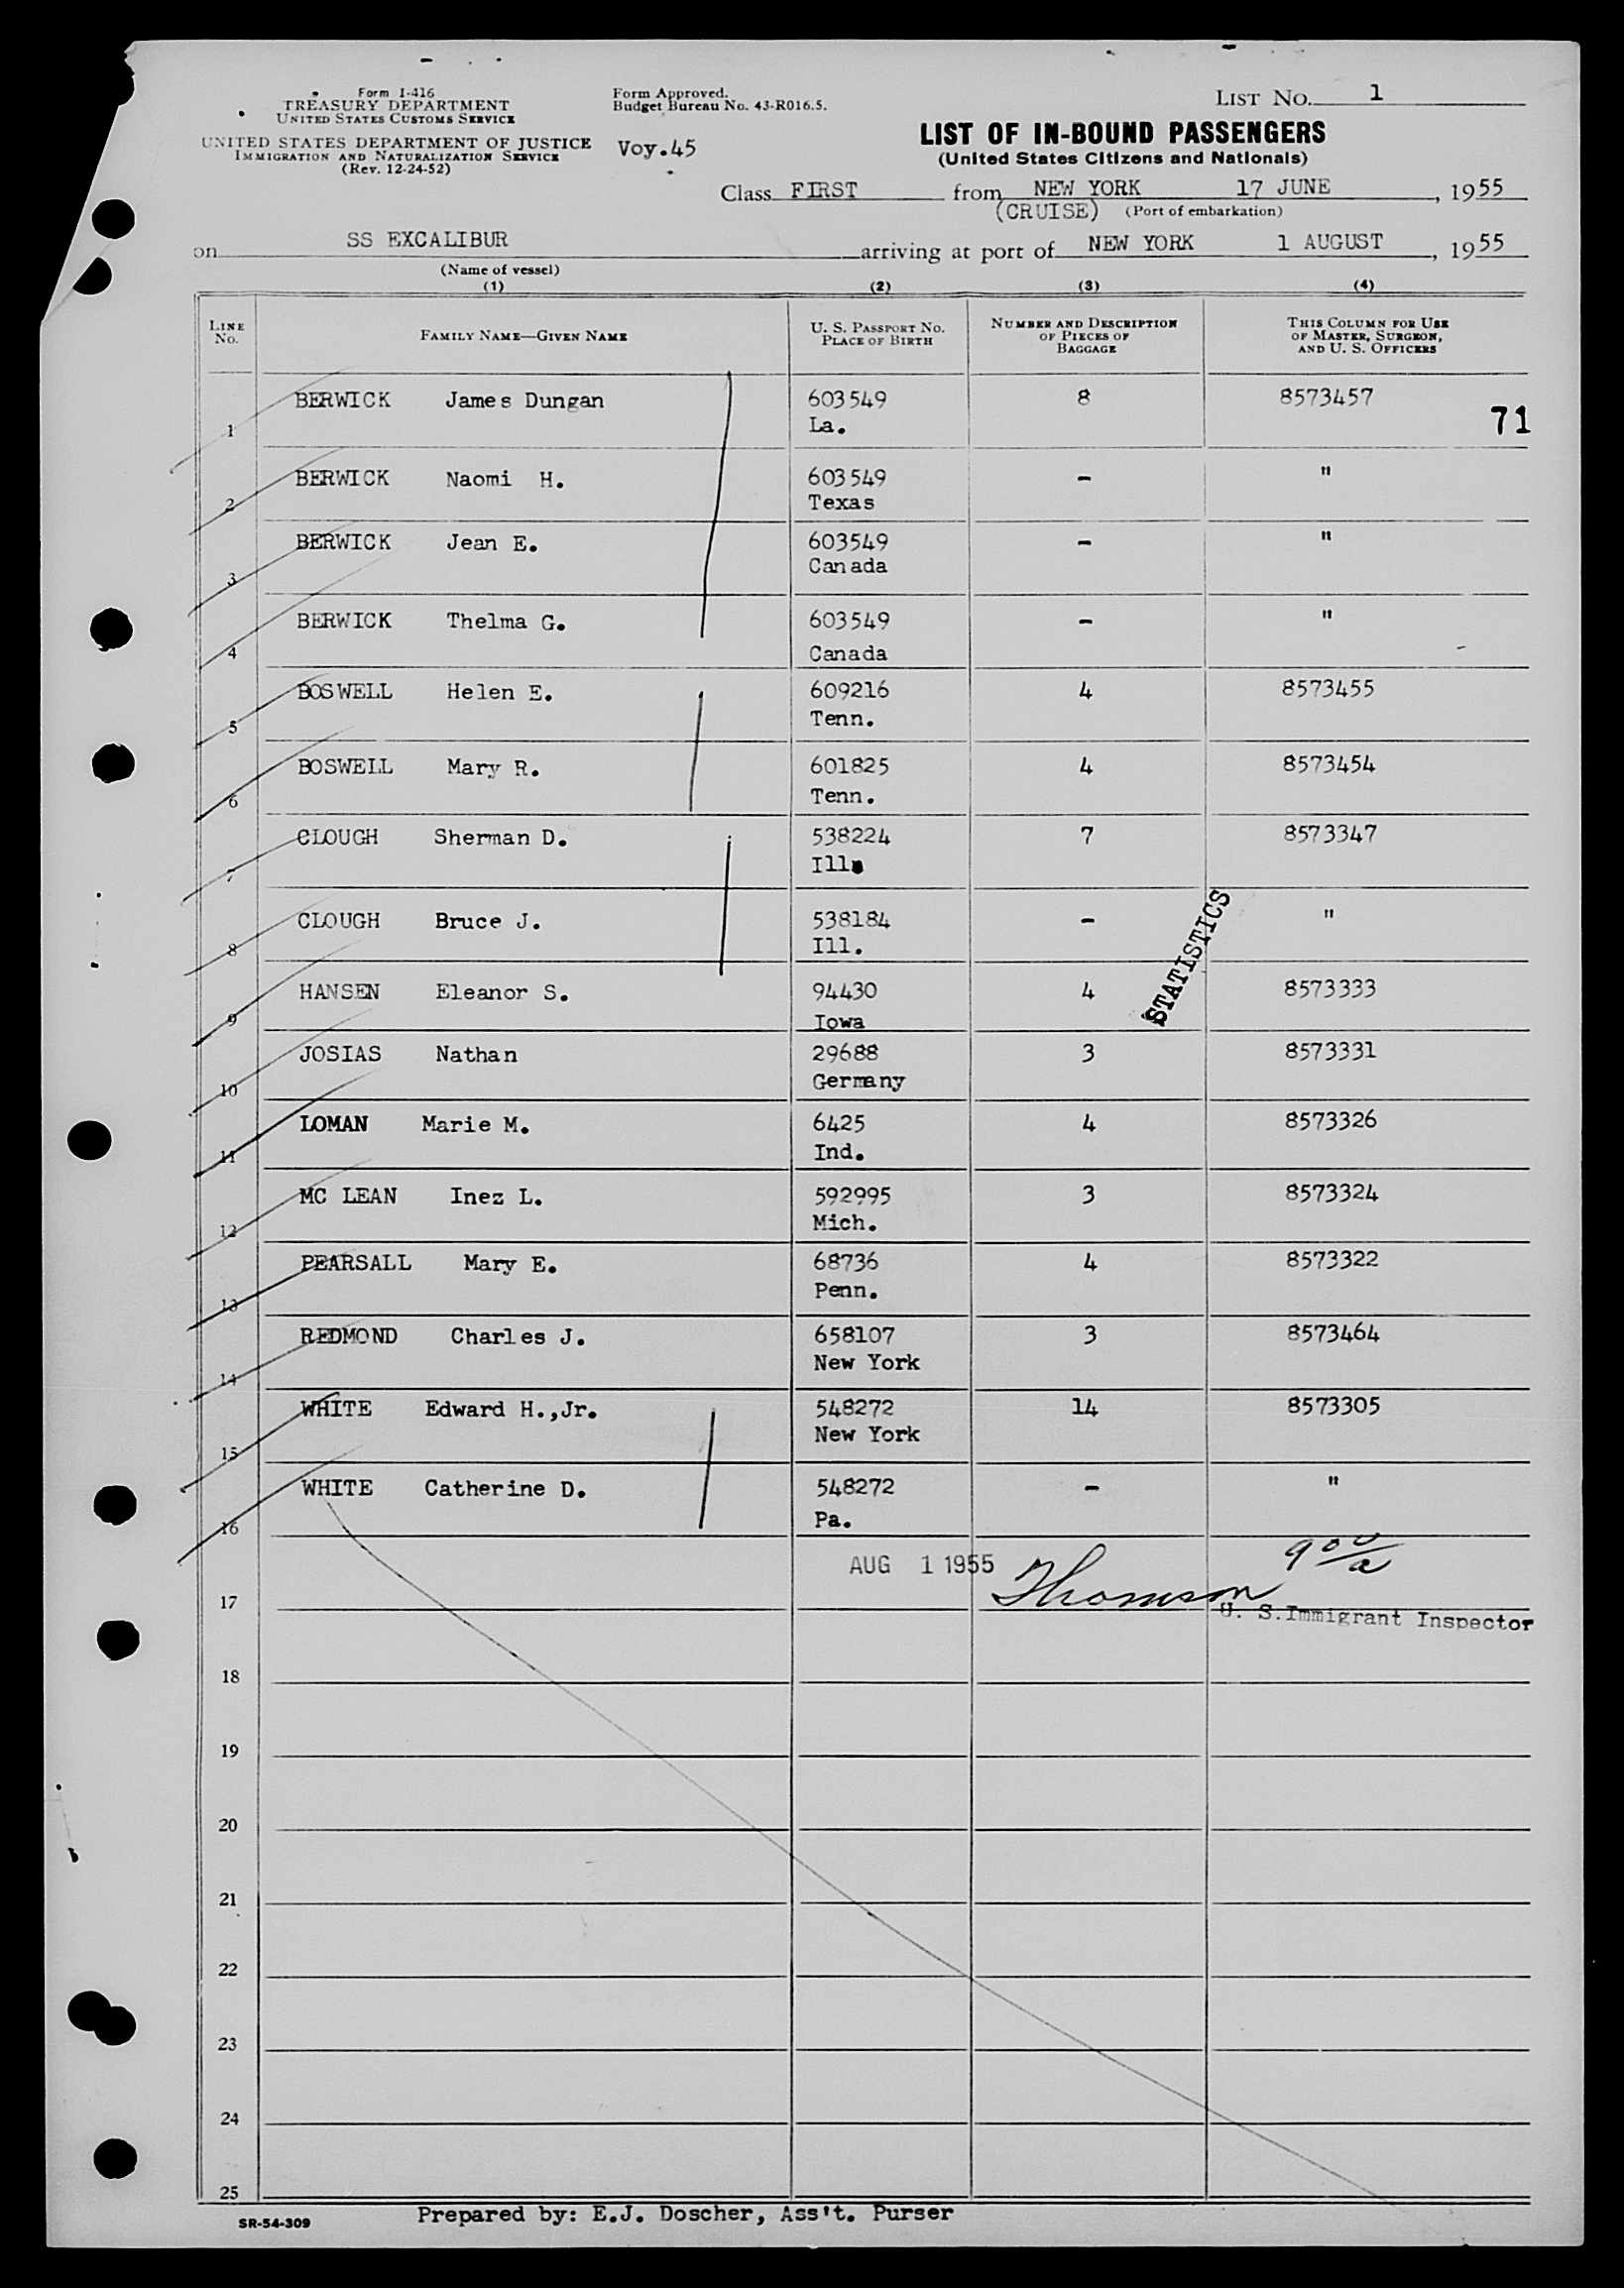 Form I-416
TREASURY DEPARTMENT
UNITED STATES CUSTOMS SERVICE
UNITED STATES DEPARTMENT OF JUSTICE
IMMIGRATION AND NATURALIZATION SERVICE
(Rev. 12-24-52)
Form Approved.
Budget Bureau No. 43-R016.5.
Voy.45
LIST NO. 1
LIST OF IN-BOUND PASSENGERS
(United States Citizens and Nationals)
Class FIRST from NEW YORK 17 JUNE, 1955
(CRUISE) (Port of embarkation)
on SS EXCALIBUR arriving at port of NEW YORK 1 AUGUST, 1955
(Name of vessel)
(1) (2) (3) (4)
LINE NO. FAMILY NAME—GIVEN NAME U. S. PASSPORT NO. PLACE OF BIRTH NUMBER AND DESCRIPTION OF PIECES OF BAGGAGE THIS COLUMN FOR USE OF MASTER, SURGEON, AND U. S. OFFICERS
1 BERWICK James Dungan 603549 8 8573457
La.
71
2 BERWICK Naomi H. 603549 - "
Texas
3 BERWICK Jean E. 603549 - "
Canada
4 BERWICK Thelma G. 603549 - "
Canada
5 BOSWELL Helen E. 609216 4 8573455
Tenn.
6 BOSWELL Mary R. 601825 4 8573454
Tenn.
7 CLOUGH Sherman D. 538224 7 8573347
Ill.
8 CLOUGH Bruce J. 538184 - "
Ill.
STATISTICS
9 HANSEN Eleanor S. 94430 4 8573333
Iowa
10 JOSIAS Nathan 29688 3 8573331
Germany
11 LOMAN Marie M. 6425 4 8573326
Ind.
12 MC LEAN Inez L. 592995 3 8573324
Mich.
13 PEARSALL Mary E. 68736 4 8573322
Penn.
14 REDMOND Charles J. 658107 3 8573464
New York
15 WHITE Edward H.,Jr. 548272 14 8573305
New York
16 WHITE Catherine D. 548272 - "
Pa.
AUG 1 1955 Thomson 9 00/a
17 U. S. Immigrant Inspector
18
19
20
21
22
23
24
25
SR-54-309 Prepared by: E.J. Doscher, Ass't. Purser